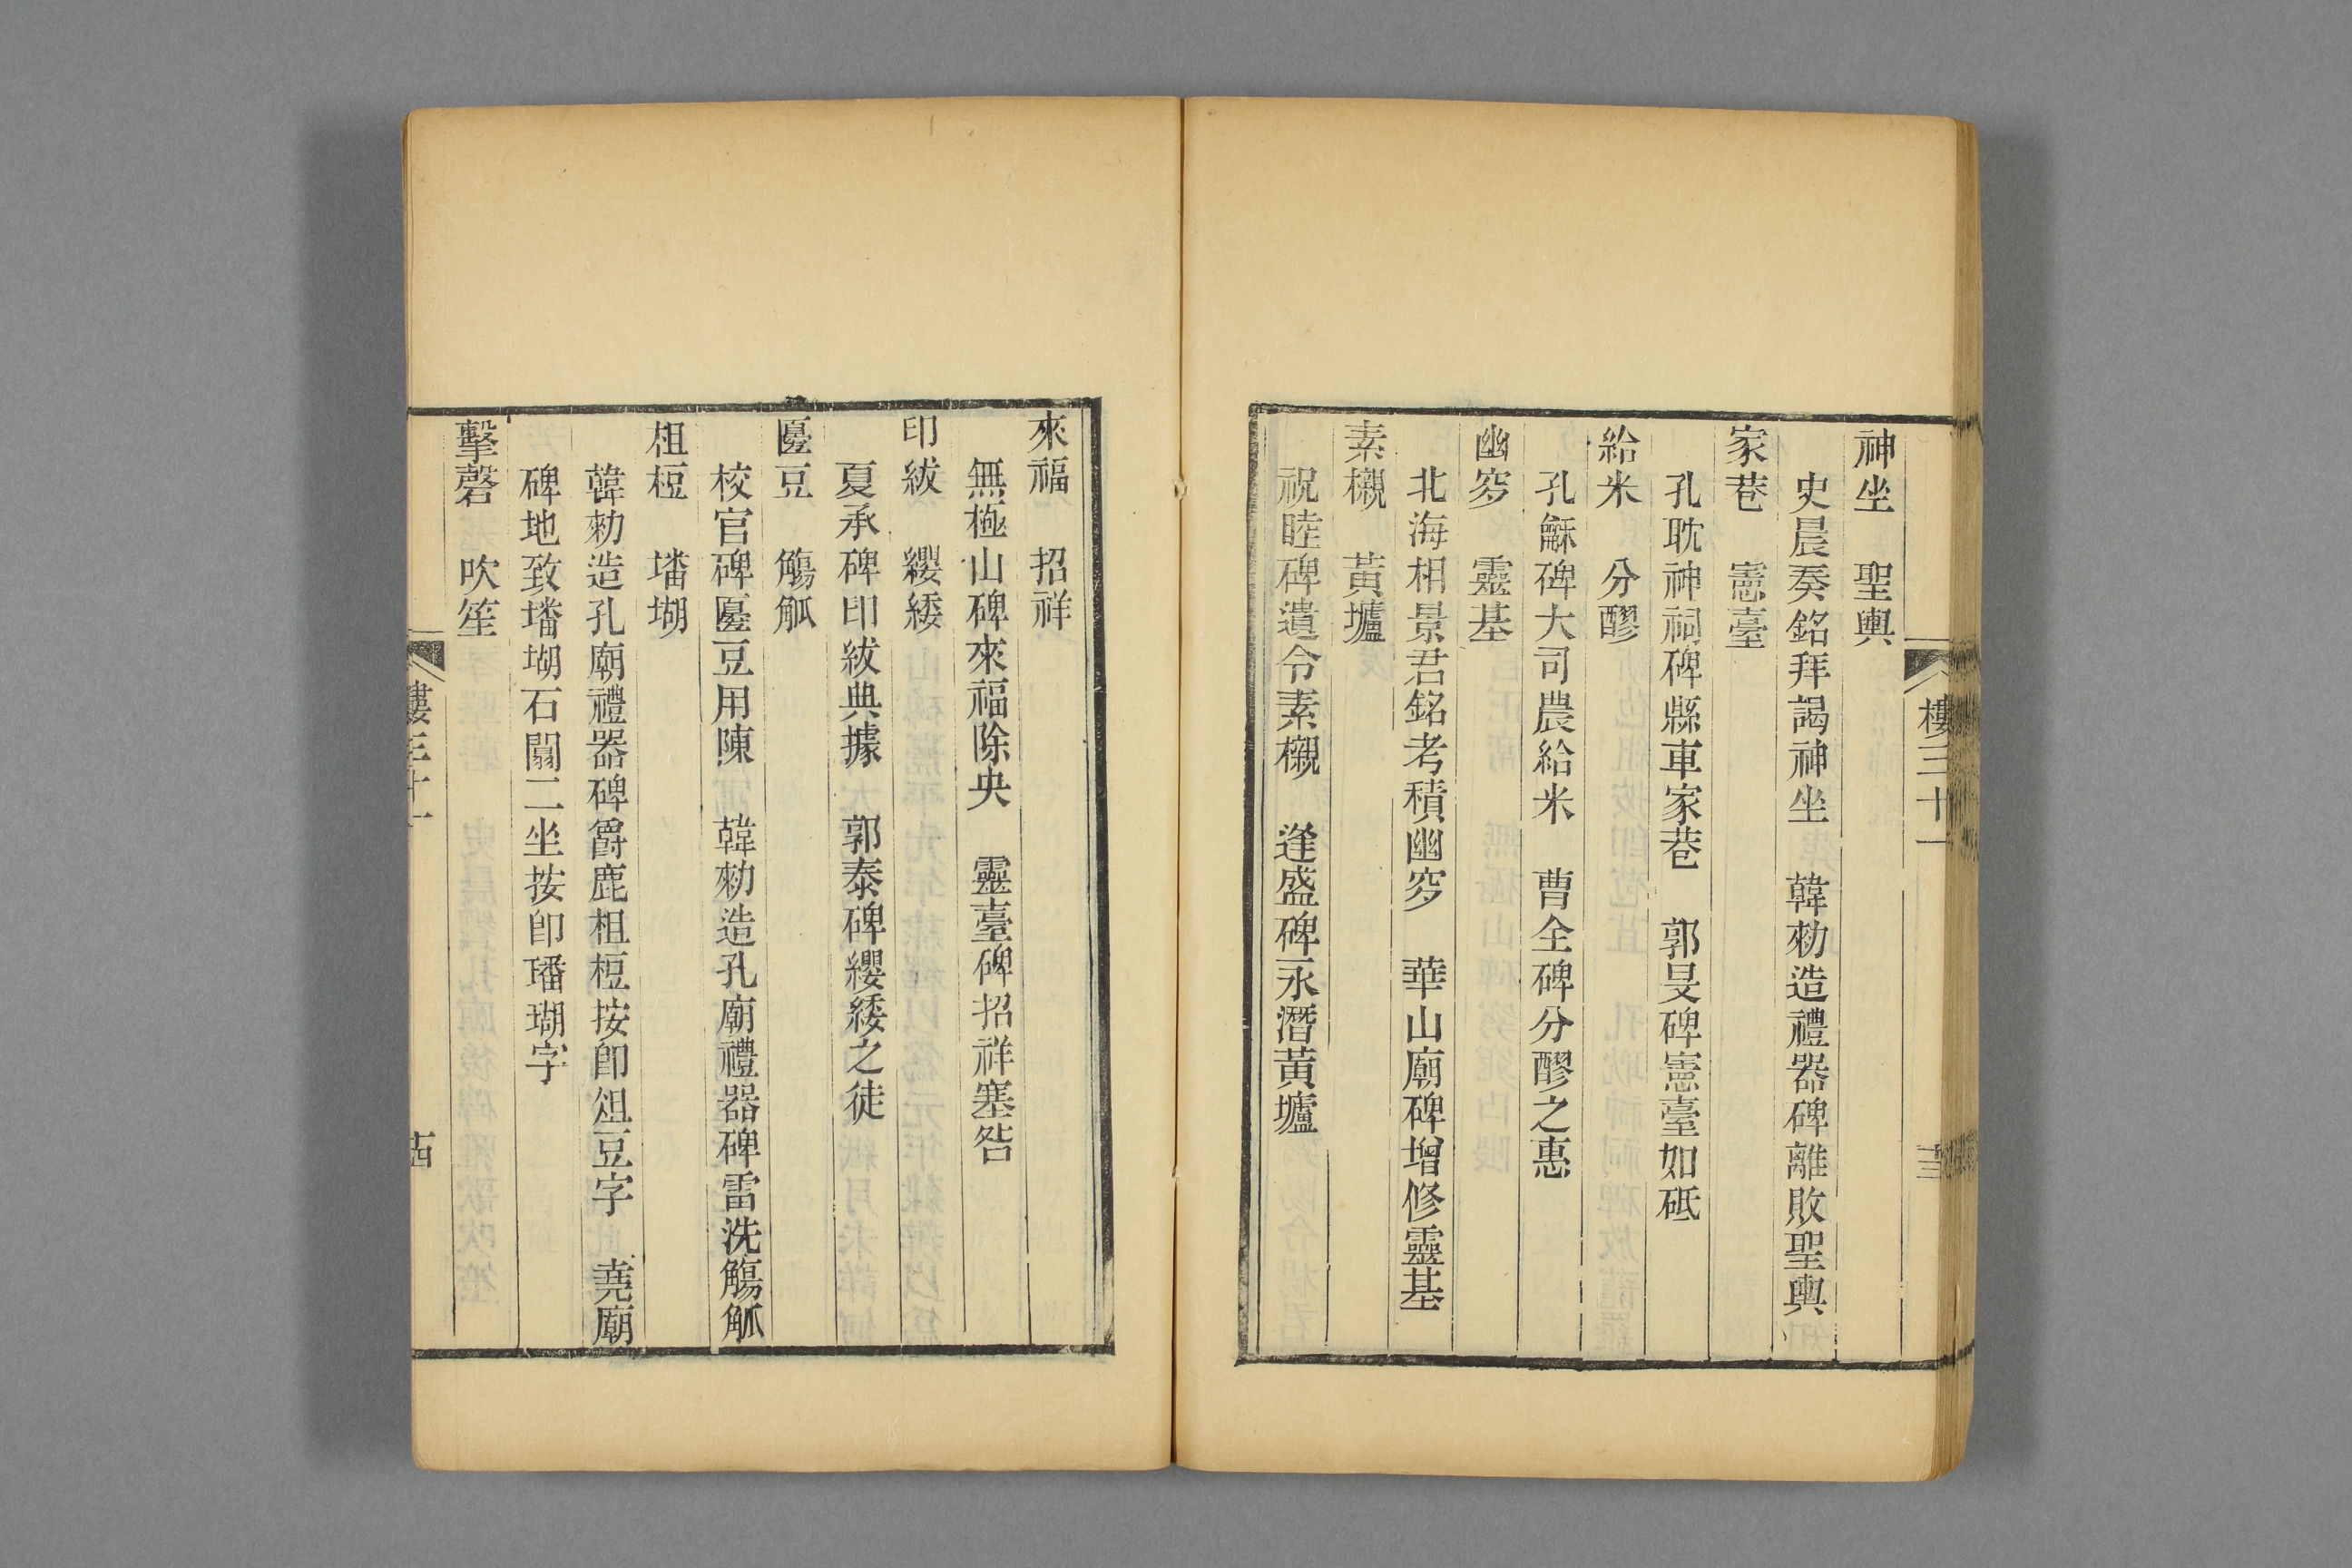 神坐　聖輿
史晨奏銘拜謁神坐　韓勑造禮器碑離敗聖輿
家巷　憲臺
孔耽神祠碑縣車家巷　郭旻碑憲臺如砥
給米　分醪
孔龢碑大司農給米　曹全碑分醪之惠
幽穸　靈基
北海相景君銘考積幽穸　華山廟碑增修靈基
素櫬　黃壚
祝睦碑遺令素櫬　逢盛碑永潛黃壚
樓三十一　十三
來福　招祥
無極山碑來福除央　靈臺碑招祥塞咎
印紱　纓緌
夏承碑印紱典據　郭泰碑纓緌之徒
籩豆　觴觚
校官碑籩豆用陳　韓勑造孔廟禮器碑雷洗觴觚
柤梪　墦堋
韓勑造孔廟禮器碑爵鹿柤梪按卽俎豆字　堯廟
碑地致墦瑚石闟二坐按卽璠瑚字
擊磬　吹笙
樓三十一　十四